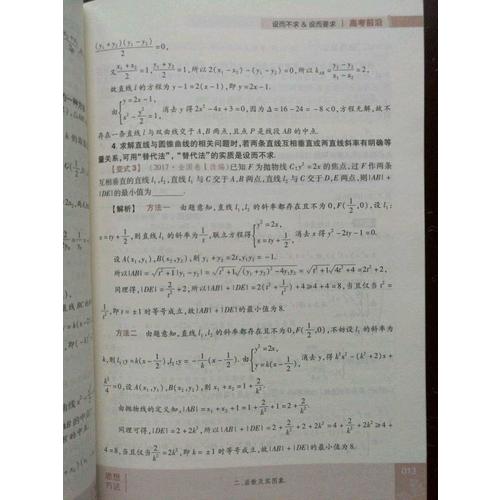 设而不求 & 设而要求 | 高考前沿
(y₁+y₂)(y₁-y₂)/2=0,
又(x₁+x₂)/2=1,(y₁+y₂)/2=1,所以2(x₁-x₂)-(y₁-y₂)=0,所以k_AB=(y₂-y₁)/(x₂-x₁)=2,
故直线l的方程为y-1=2(x-1),即y=2x-1.
由{y=2x-1, x²-y²/2=1, 消去y得2x²-4x+3=0,因为Δ=16-24=-8<0,方程无解,故不
存在一条直线l与双曲线交于A,B两点,且点P是线段AB的中点.
4.求解直线与圆锥曲线的相关问题时,若两条直线互相垂直或两直线斜率有明确等
量关系,可用“替代法”,“替代法”的实质是设而不求.
【变式3】(2017·全国卷Ⅰ改编)已知F为抛物线C:y²=2x的焦点,过F作两条
互相垂直的直线l₁,l₂,直线l₁与C交于A,B两点,直线l₂与C交于D,E两点,则|AB|+
|DE|的最小值为
【解析】 方法一 由题意知,直线l₁,l₂的斜率都存在且不为0,F(1/2,0),设l₁:
x=ty+1/2,则直线l₁的斜率为1/t,联立方程得{y²=2x, x=ty+1/2, 消去x得y²-2ty-1=0.
设A(x₁,y₁),B(x₂,y₂),则y₁+y₂=2t,y₁y₂=-1.
所以|AB|=√(t²+1)|y₁-y₂|=√(t²+1)√((y₁+y₂)²-4y₁y₂)=√(t²+1)√(4t²+4)=2t²+2,
同理得,|DE|=2/t²+2,所以|AB|+|DE|=2(t²+1/t²)+4≥4+4=8,当且仅当t²=
1/t²,即t=±1时等号成立,故|AB|+|DE|的最小值为8.
方法二 由题意知,直线l₁,l₂的斜率都存在且不为0,F(1/2,0),不妨设l₁的斜率为
k,则l₁:y=k(x-1/2),l₂:y=-1/k(x-1/2).由{y²=2x, y=k(x-1/2), 消去y,得k²x²-(k²+2)x+
k²/4=0,设A(x₁,y₁),B(x₂,y₂),则x₁+x₂=1+2/k².
由抛物线的定义知,|AB|=x₁+x₂+1=1+2/k²+1=2+2/k².
同理可得,|DE|=2+2k²,所以|AB|+|DE|=2+2/k²+2+2k²=4+2/k²+2k²≥4+
4=8,当且仅当2/k²=2k²,即k=±1时等号成立,故|AB|+|DE|的最小值为8.
思想
方法
二、函数及其图象
013